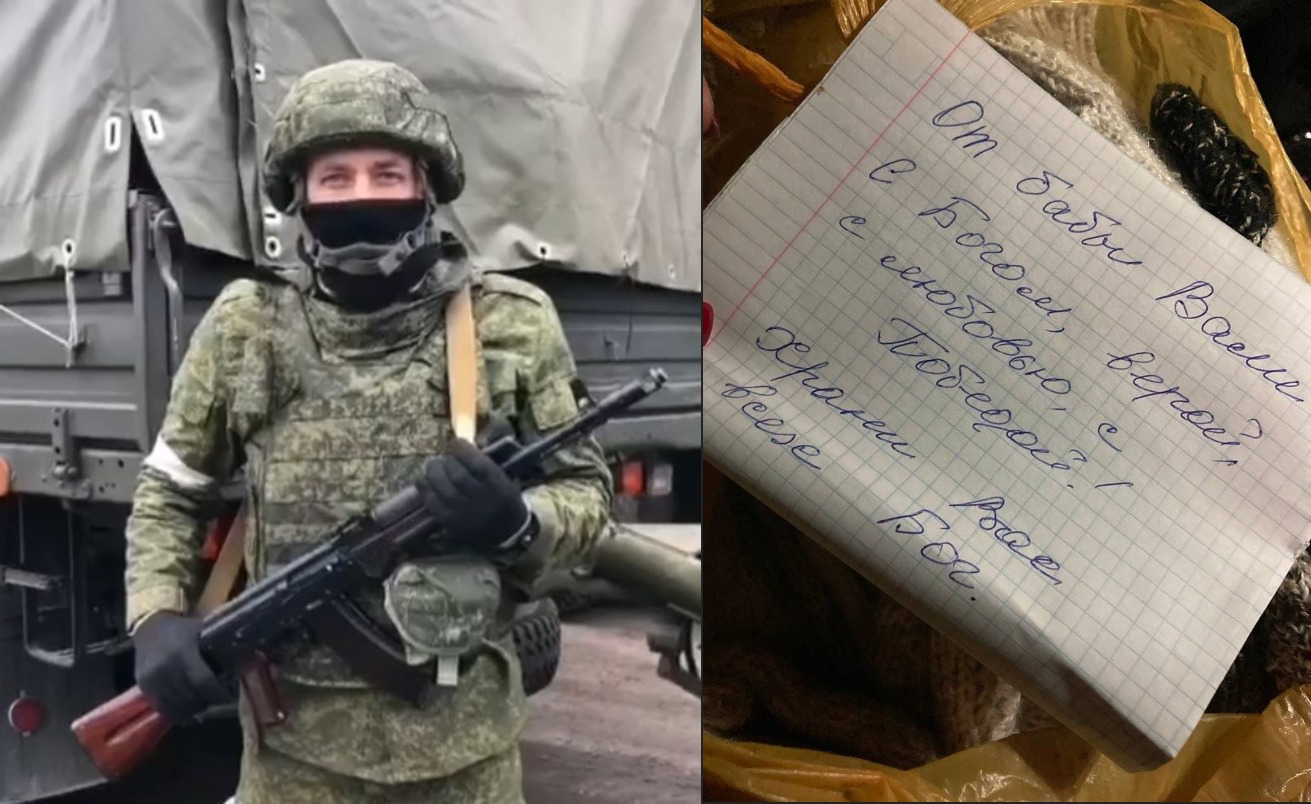 От бабы Вали
С Богом, верой,
с любовью, с
Победой!
Храни Вас,
всех Бог.